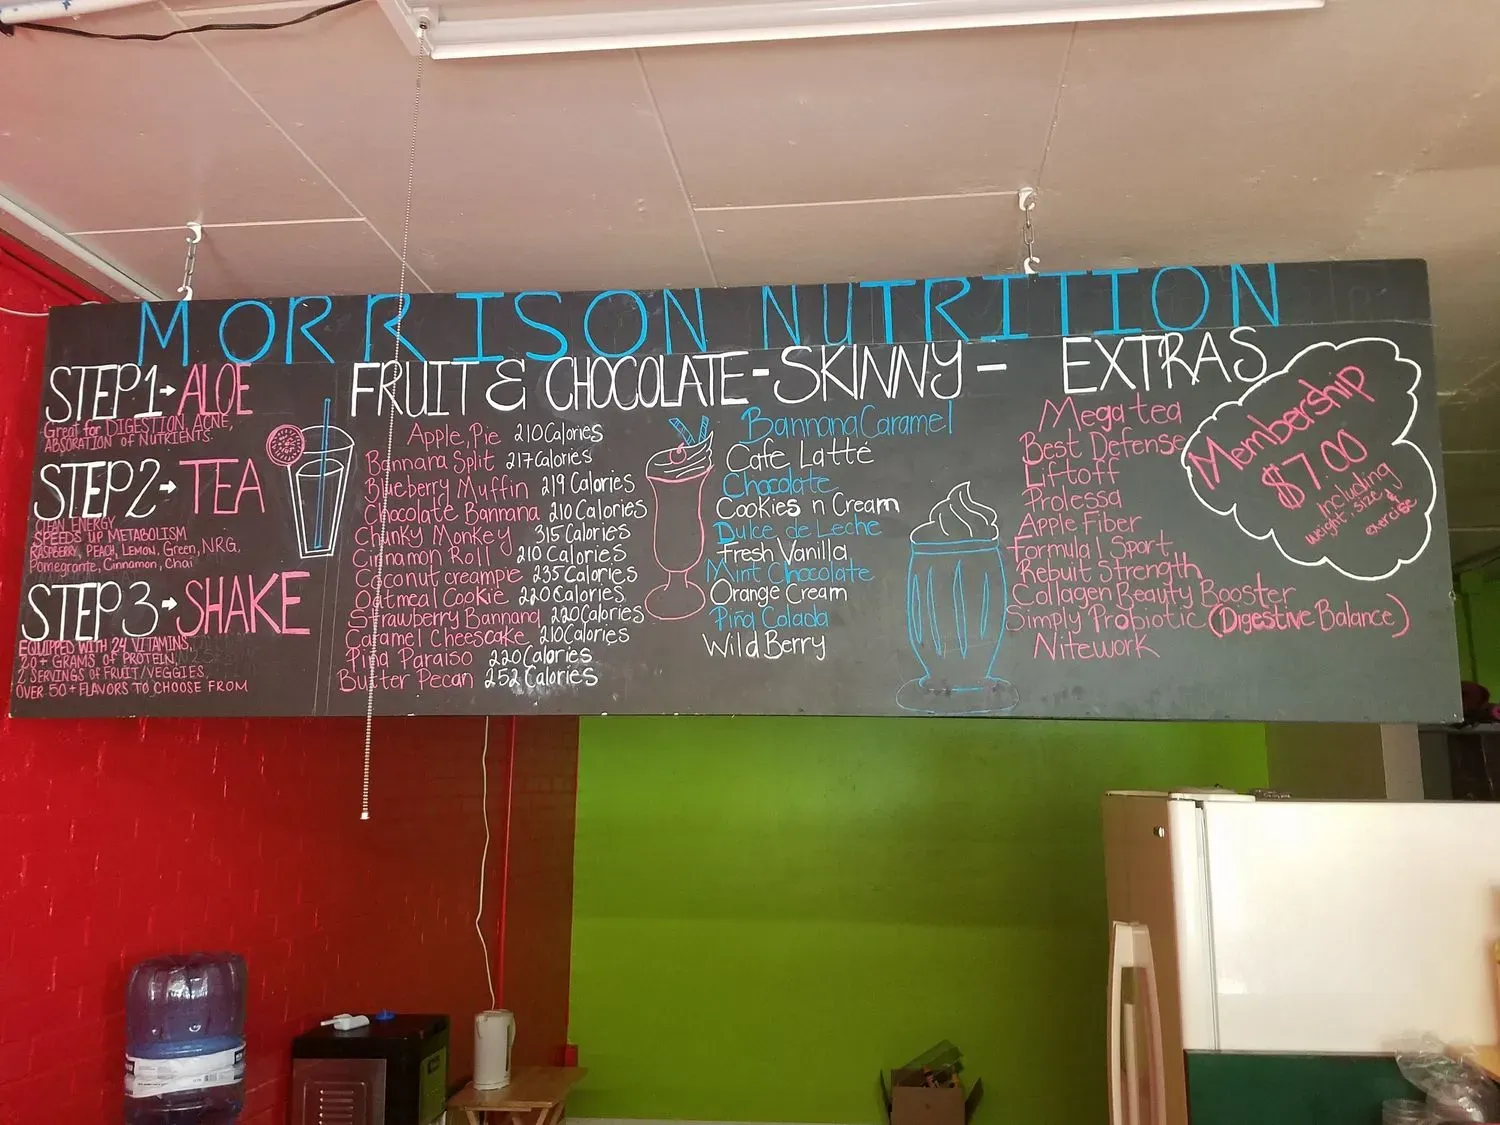 MORRISON NUTRITION
STEP 1 → ALOE
Great for DIGESTION, ACNE,
ABSORATION OF NUTRIENTS.
STEP 2 → TEA
CLEAN ENERGY
SPEEDS UP METABOLISM
RASPBERRY, PEACH, LEMON, Green, NRG,
Pomegrante, Cinnamon, Chai
STEP 3 → SHAKE
EQUIPPED WITH 24 VITAMINS,
20+ GRAMS OF PROTEIN,
2 SERVINGS OF FRUIT/VEGGIES,
OVER 50+ FLAVORS TO CHOOSE FROM
FRUIT & CHOCOLATE - SKINNY -
Apple Pie 210 Calories
Bannana Split 217 Calories
Blueberry Muffin 219 Calories
Chocolate Bannana 210 Calories
Chunky Monkey 315 Calories
Cinnamon Roll 210 Calories
Coconut creampie 235 Calories
Oatmeal Cookie 220 Calories
Strawberry Bannana 220 Calories
Caramel Cheescake 210 Calories
Piña Paraiso 220 Calories
Butter Pecan 252 Calories
Bannana Caramel
Cafe Latté
Chocolate
Cookies n Cream
Dulce de Leche
Fresh Vanilla
Mint Chocolate
Orange Cream
Piña Colada
Wild Berry
EXTRAS
Mega tea
Best Defense
Liftoff
Prolessa
Apple Fiber
Formula 1 Sport
Rebuit Strength
Collagen Beauty Booster
Simply Probiotic (Digestive Balance)
Nitework
Membership
$7.00
Including
weight, size, &
exercise